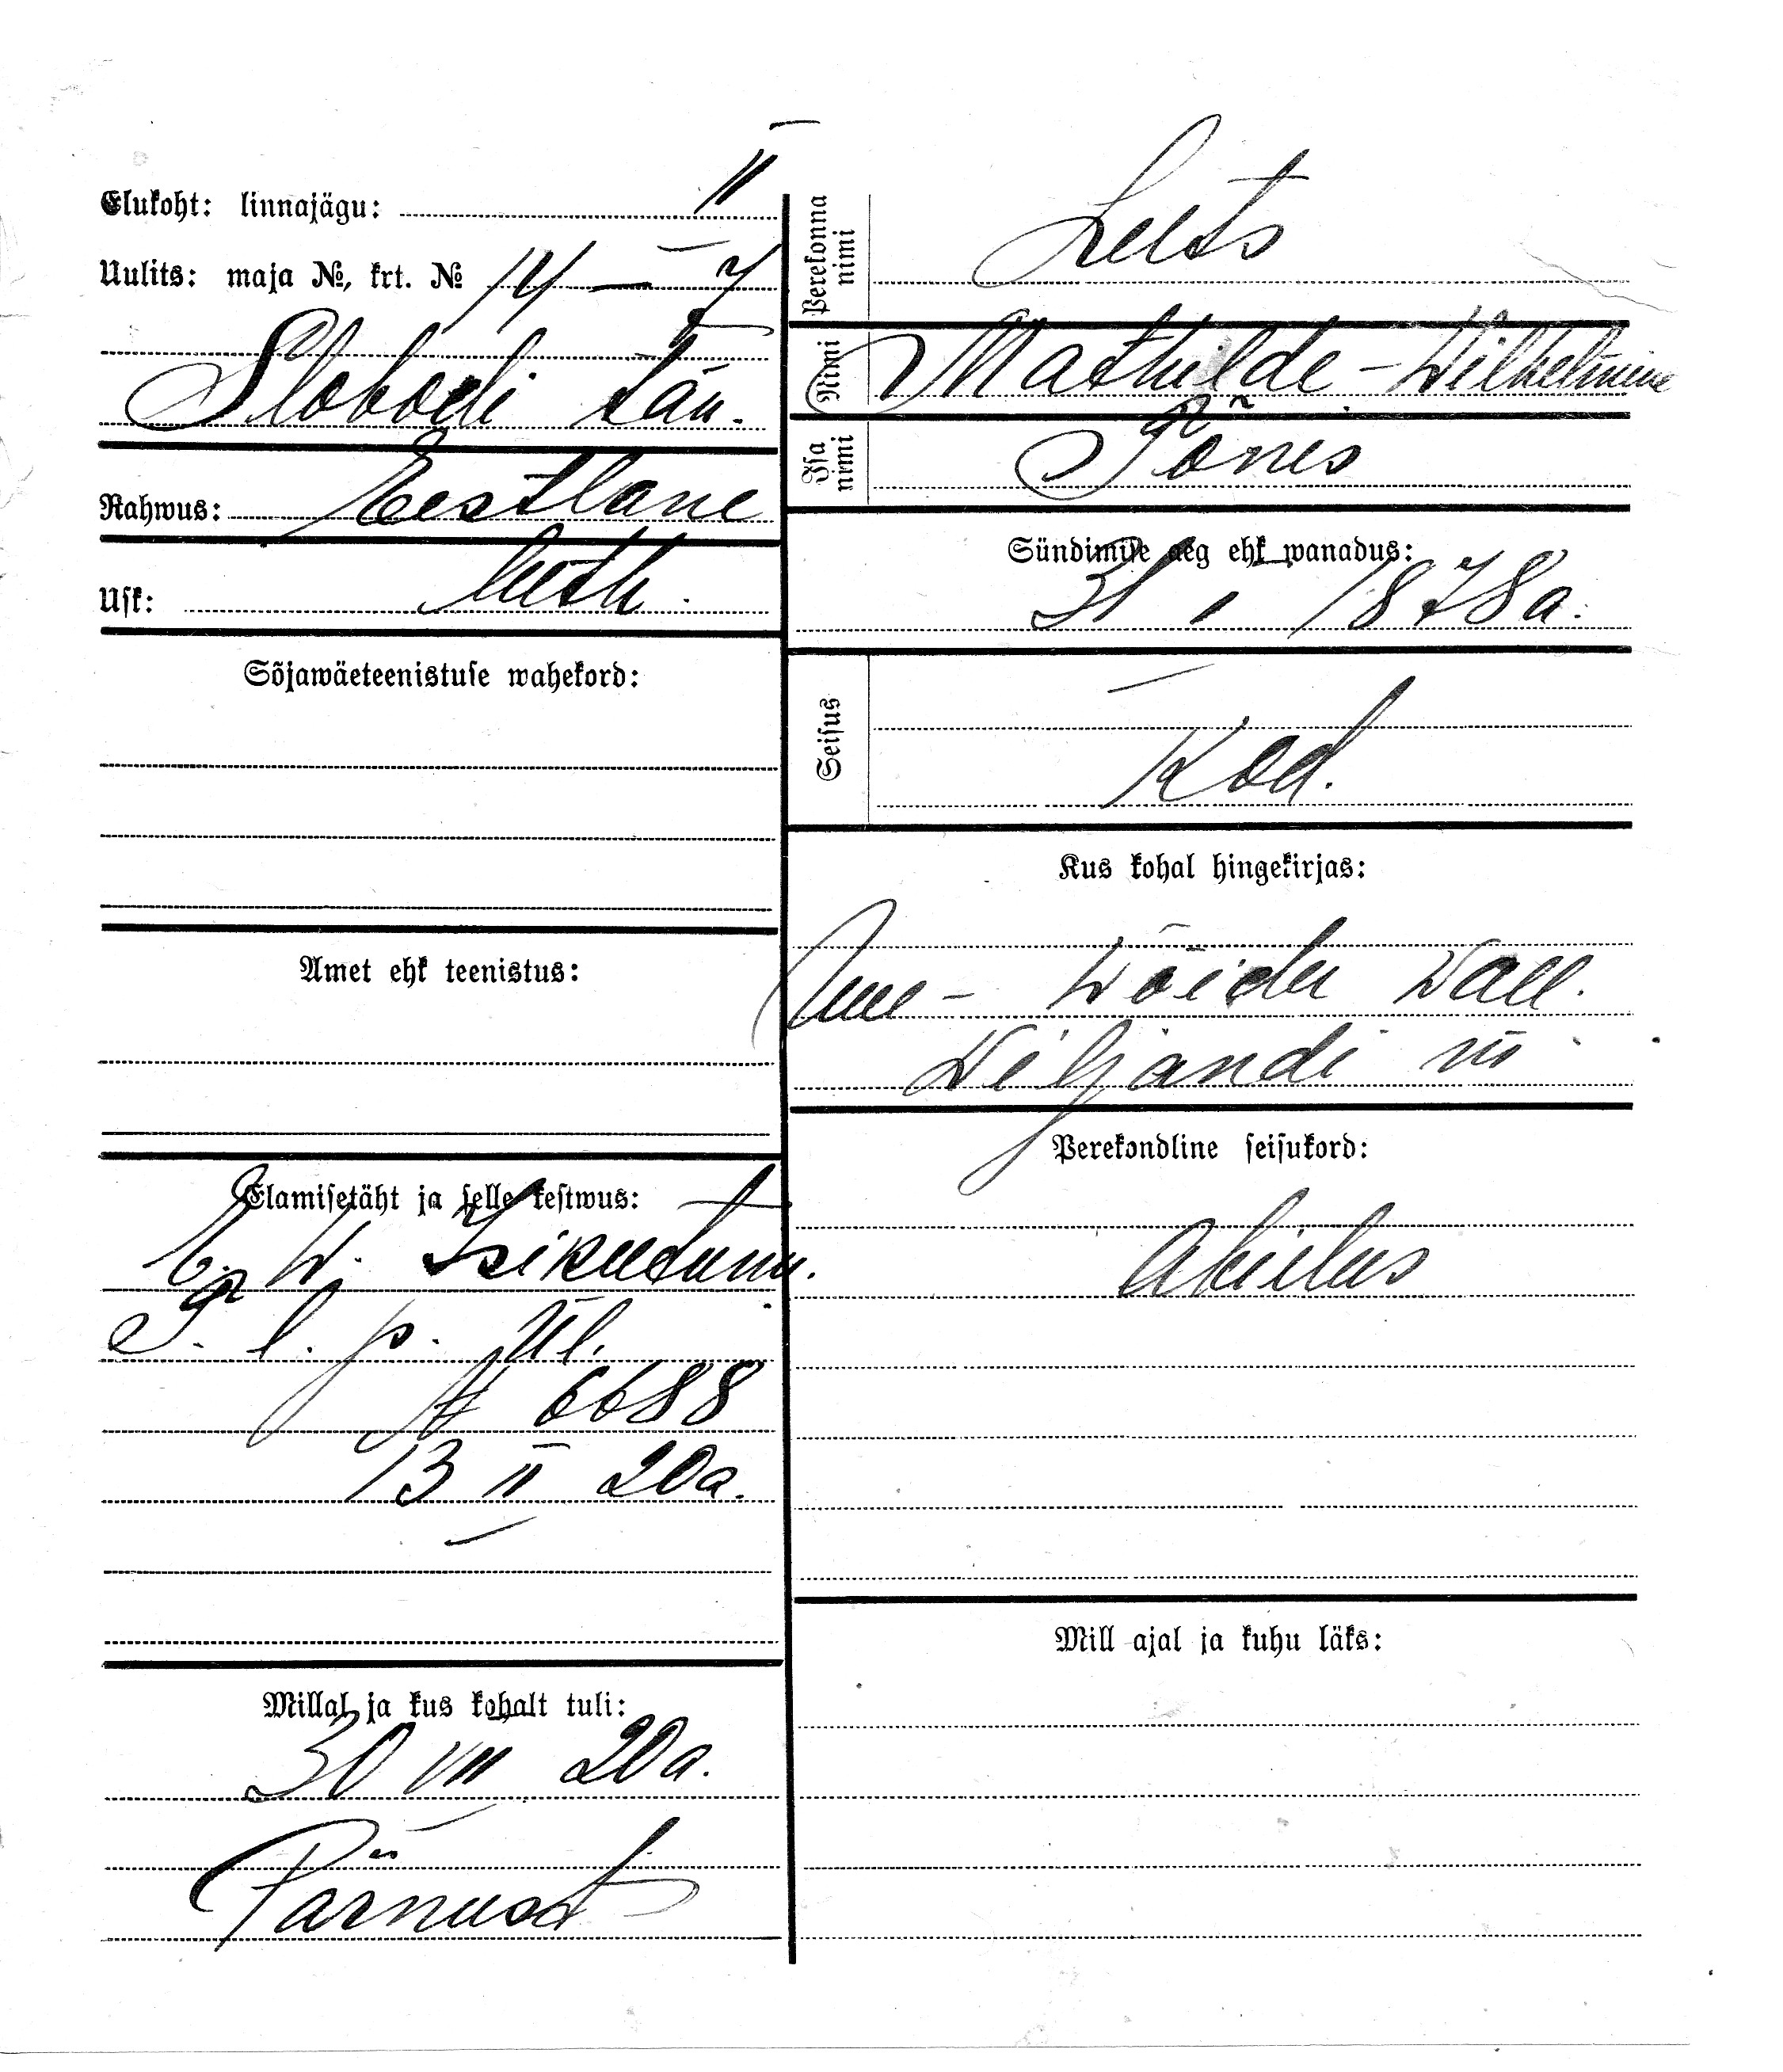 Elukoht: linnajägu: II
Uulits: maja №, krt. № 14 – 7
Slobodi tän.
Rahwus: Eestlane
Usk: luth.
Sõjawäeteenistuse wahekord:
Amet ehk teenistus:
Elamisetäht ja selle kestwus:
E. W. Isikutunn.
T. l. p. ül.
№ 6688
13 II 20 a.
Millal ja kus kohalt tuli:
30 VII 20 a.
Pärnust
Perekonna nimi Leets
Nimi Mathilde-Wilhelmine
Isa nimi Tõnes
Sündimise aeg ehk wanadus:
31 I 1878 a.
Seisus
Kod.
Kus kohal hingekirjas:
Uue-Wõidu wall.
Wiljandi
Perekondline seisukord:
Abielus
Mill ajal ja kuhu läks: